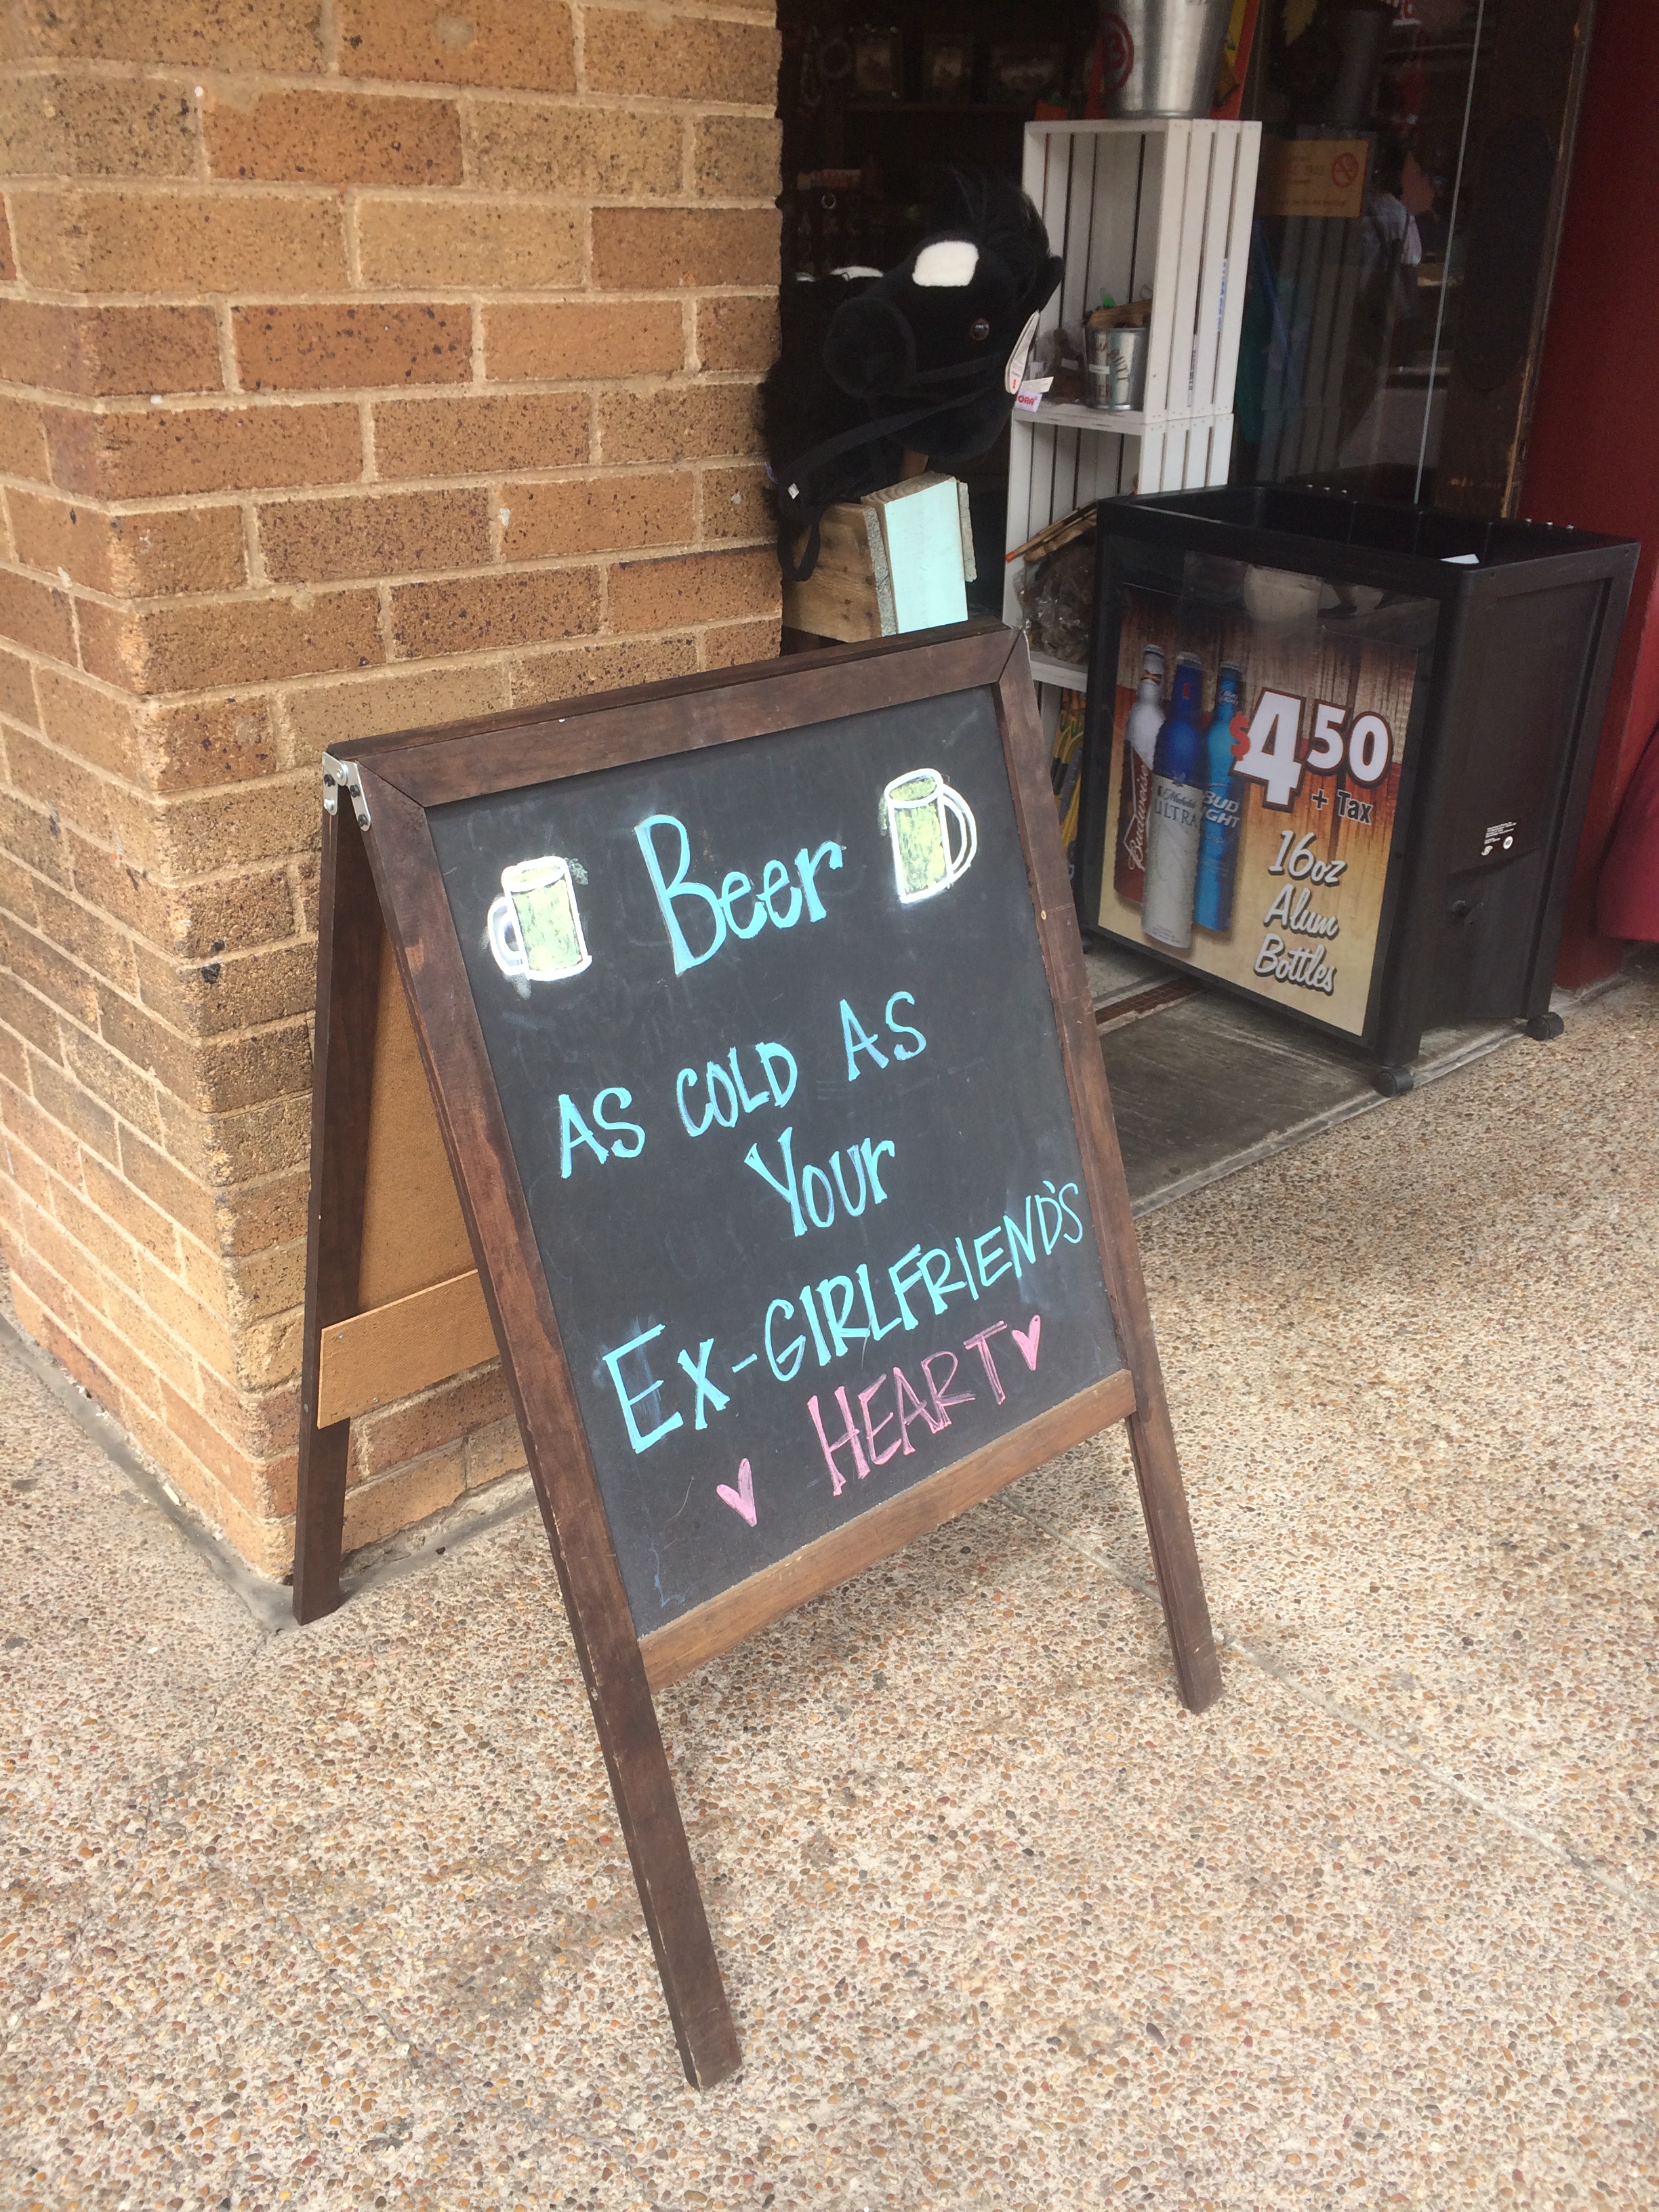 Beer
AS COLD AS
Your
EX-GIRLFRIEND'S
HEART
$4.50
+ Tax
16oz
Alum
Bottles
Budweiser
Michelob
ULTRA
BUD
LIGHT